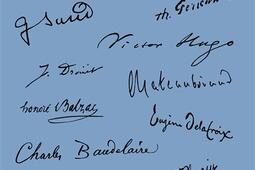 g Sand
Th. Gautier
Victor Hugo
J. Drouet
Chateaubriand
honoré Balzac
Eugène Delacroix
Charles Baudelaire